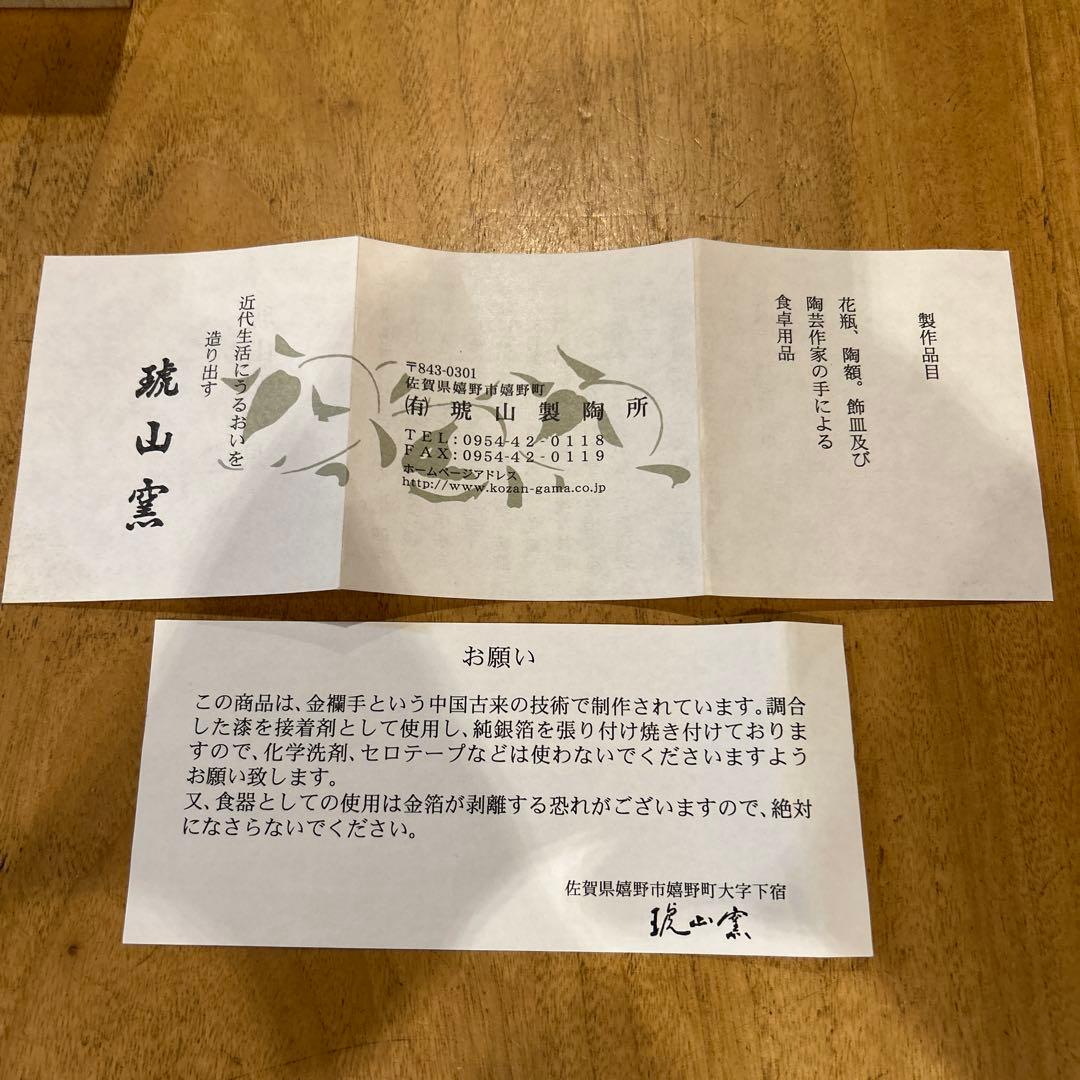 製作品目
花瓶、陶額。飾皿及び
陶芸作家の手による
食卓用品
〒843-0301
佐賀県嬉野市嬉野町
㈲ 琥山製陶所
TEL:0954-42-0118
FAX:0954-42-0119
ホームページアドレス
http://www.kozan-gama.co.jp
近代生活にうるおいを
造り出す
琥山窯
お願い
この商品は、金襴手という中国古来の技術で制作されています。調合
した漆を接着剤として使用し、純銀箔を張り付け焼き付けておりま
すので、化学洗剤、セロテープなどは使わないでくださいますよう
お願い致します。
又、食器としての使用は金箔が剥離する恐れがございますので、絶対
になさらないでください。
佐賀県嬉野市嬉野町大字下宿
琥山窯